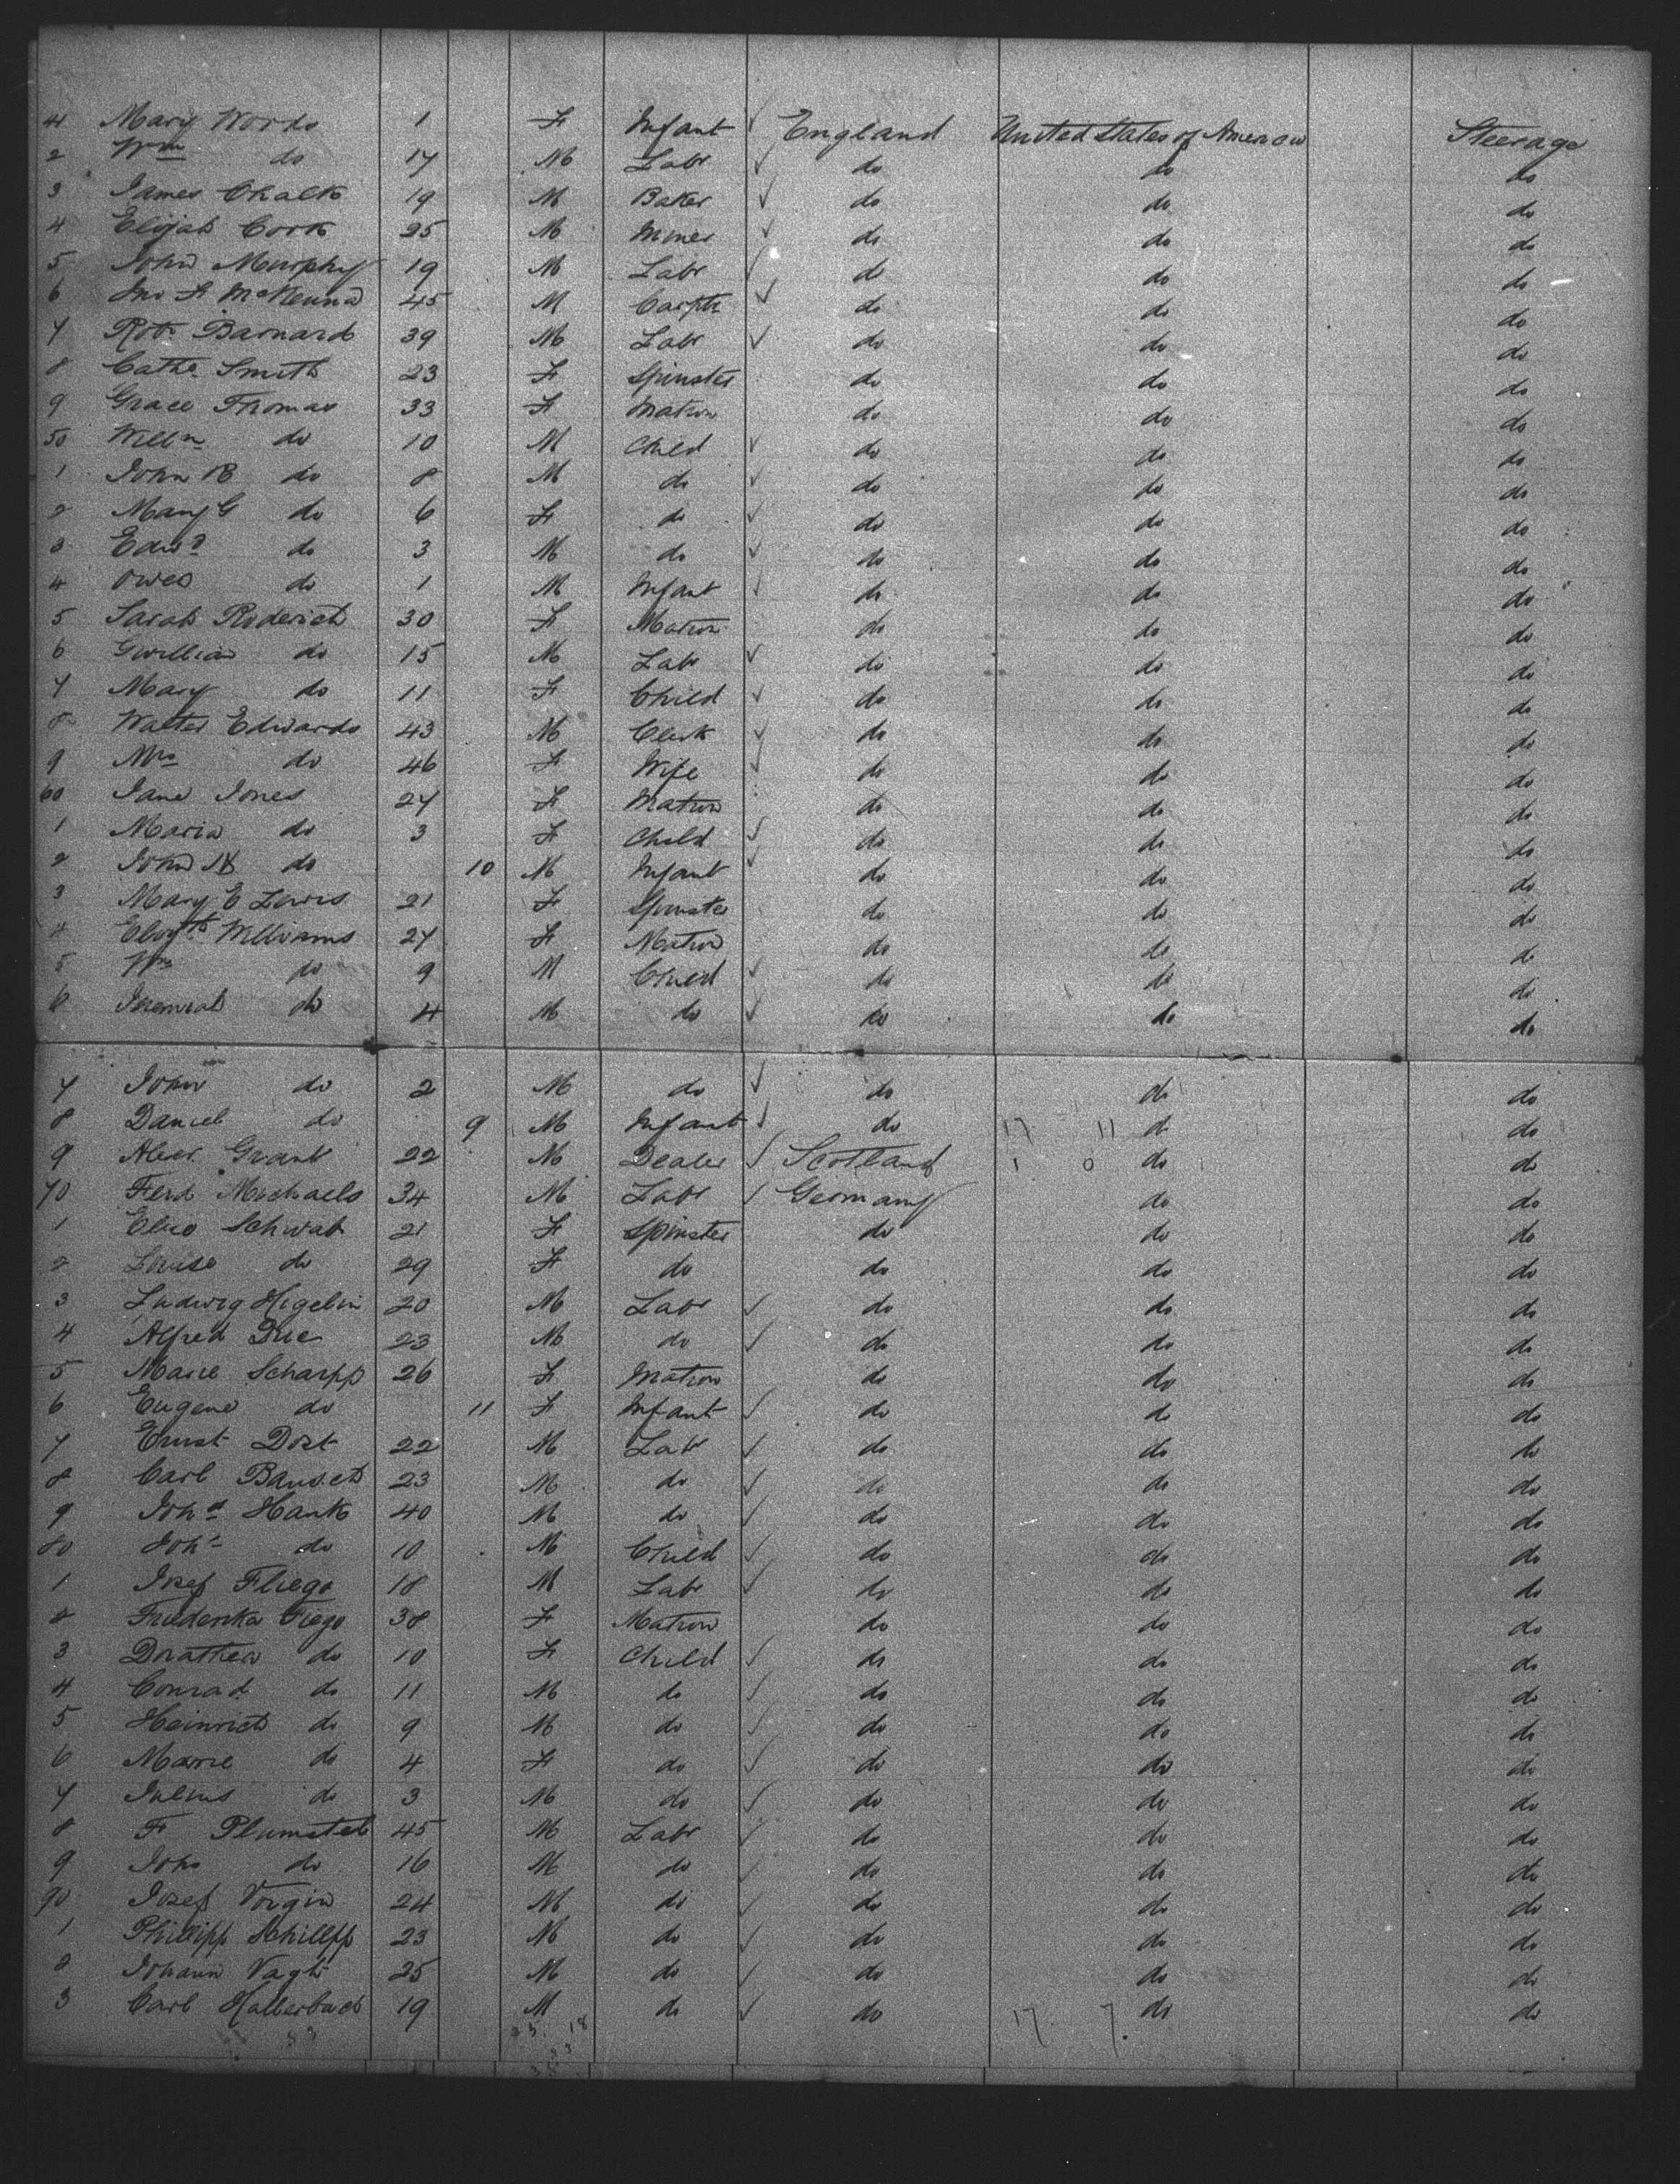 41 Mary Words 1 F Infant ✓ England United States of America Steerage
2 Wm do 17 M Labr ✓ do do do
3 James Chalk 19 M Baker ✓ do do do
4 Elijah Cork 25 M Miner ✓ do do do
5 John Murphy 19 M Labr ✓ do do do
6 Jno F McKenna 45 M Carptr ✓ do do do
7 Robt Barnard 39 M Labr ✓ do do do
8 Cathe Smith 23 F Spinster do do do
9 Grace Thomas 33 F Matron do do do
50 Willm do 10 M Child ✓ do do do
1 John B do 8 M do ✓ do do do
2 Mary G do 6 F do ✓ do do do
3 Edwd do 3 M do ✓ do do do
4 Owen do 1 M Infant ✓ do do do
5 Sarah Roderick 30 F Matron do do do
6 Gwilliam do 15 M Labr ✓ do do do
7 Mary do 11 F Child ✓ do do do
8 Walter Edwards 43 M Clerk ✓ do do do
9 Mrs do 46 F Wife ✓ do do do
60 Jane Jones 27 F Matron do do do
1 Maria do 3 F Child ✓ do do do
2 John do 10 M Infant ✓ do do do
3 Mary E Lewis 21 F Spinster do do do
4 Elizth Williams 27 F Matron do do do
5 Wm do 9 M Child ✓ do do do
6 Jeremiah do 4 M do ✓ do do do
7 John do 2 M do ✓ do do do
8 Daniel do 9 M Infant ✓ do 17 11 do do
9 Alexr Grant 22 M Dealer ✓ Scotland 1 0 do do
70 Ferd Michaels 34 M Labr ✓ Germany do do
1 Elise Schwab 21 F Spinster do do do
2 Louise do 29 F do do do do
3 Ludwig Higelin 20 M Labr ✓ do do do
4 Alfred Due 23 M do ✓ do do do
5 Marie Scharpp 26 F Matron do do do
6 Eugene do 11 F Infant ✓ do do do
7 Ernst Dost 22 M Labr ✓ do do do
8 Carl 23 M do ✓ do do do
9 Johs Hank 40 M do ✓ do do do
80 Johs do 10 M Child ✓ do do do
1 Josef Fliege 18 M Labr ✓ do do do
2 Frederika Fiege 38 F Matron do do do
3 Dorathea do 10 F Child ✓ do do do
4 Conrad do 11 M do ✓ do do do
5 Heinrich do 9 M do ✓ do do do
6 Marie do 4 F do ✓ do do do
7 Julius do 3 M do ✓ do do do
8 F 45 M Labr ✓ do do do
9 Johs do 16 M do ✓ do do do
90 Josef Vorgin 24 M do ✓ do do do
1 Phillipp Schillpp 23 M do ✓ do do do
2 Johann Vagt 25 M do ✓ do do do
3 Carl Hallerbach 19 M do ✓ do 17 7. do do